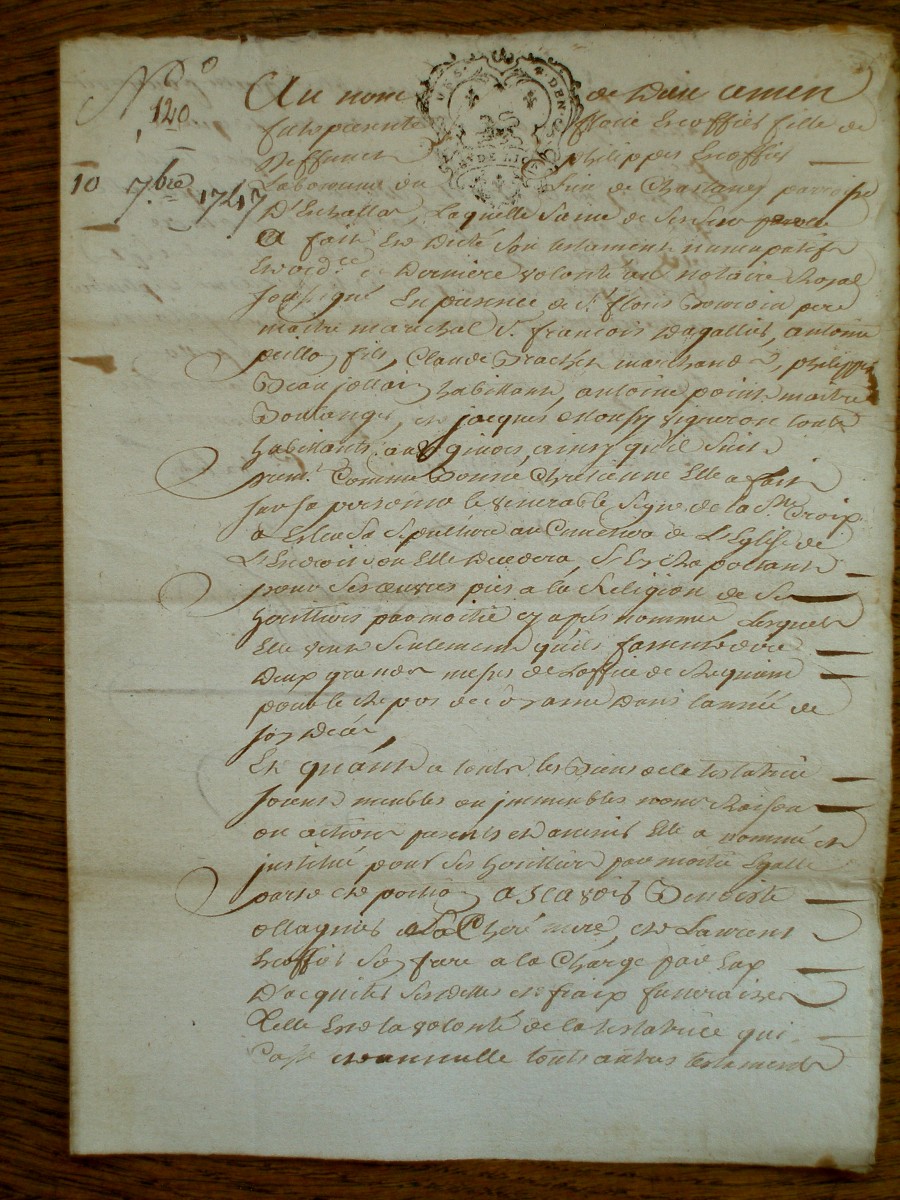 N.º
120.
10 7.bre 1747
Au nom de Dieu amen
fut presente fleurie Escoffier fille de
deffunct philippes Escoffier
Laboureur du lieu de Chassaney parroisse
D'Echallas, Laquelle Saine de Ses Sens
A fait Et Dicté Son testament nuncupatif
Et ord.ce de Derniere volonté au notaire Royal
Soussigné En presence de S.r père
maitre marechal S.r francois Dagallier, antoine
fils, Claude marchand, philippes
Beaujollin habittant, antoine point maitre
Boulanger, et jacques vigneron touts
habittants a Givors, ainsy qu'il Suit
prem.t Comme Bonne Chretienne Elle a fait
Sur Sa personne le venerable Signe de la S.te Croix
a Esleu Sa Sepulture au Cimetiere de L'Eglise de
L'Endroit ou Elle Decedera, S'En Rapportant
pour Ses oeuvres pies a la Religion de Ses
heritiers par moitié cy après nommés Lesquels
Elle veut Seulement qu'ils fassent dire
Deux grandes messes de L'office de Requiem
pour le Repos de son ame Dans l'année de
son Decés
Et quánt a touts les Biens de la testatrice
Soient meubles ou immeubles noms Raisons
ou actions presents et avenir Elle a nommé et
institué pour Ses heritiers par moitié Egalle
part et portion, a Scavoir Benoiste
Magnier Sa Chere mere, et Laurent
Escoffier Son frere a la Charge par Eux
D'acquiter Ses dettes et fraix funeraires
Telle Est la volonté de la testatrice qui
Casse et annulle touts autres testaments